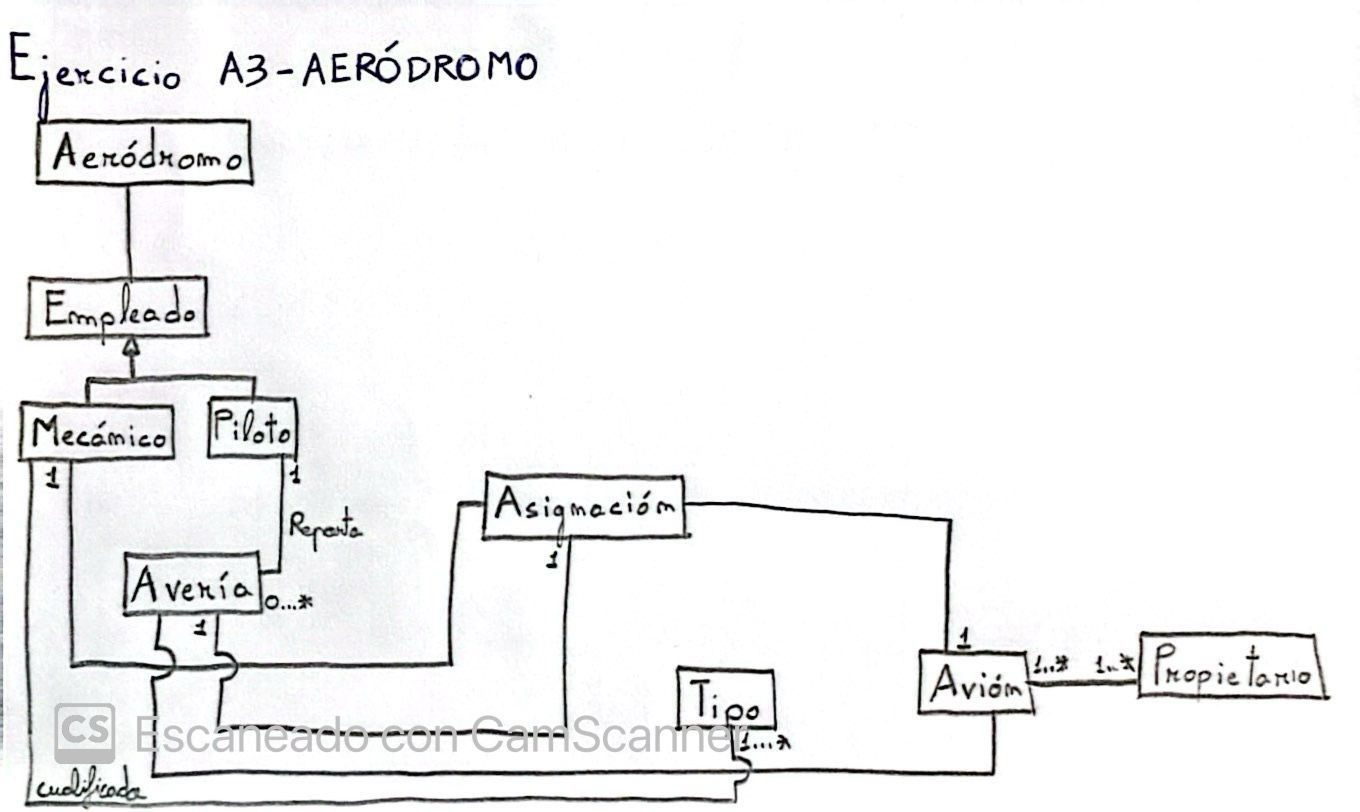 Ejercicio A3-AERÓDROMO
Aeródromo
Empleado
Mecánico
Piloto
1
1
Reporta
Asignación
1
Avería
0...*
1
1
Avión
1..*
1..*
Propietario
Tipo
1...*
CS Escaneado con CamScanner
cualificada